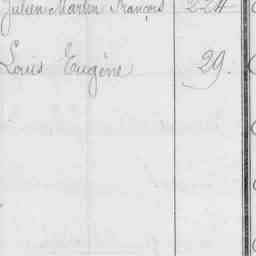 Julien Martin François 224
Louis Eugène 29.